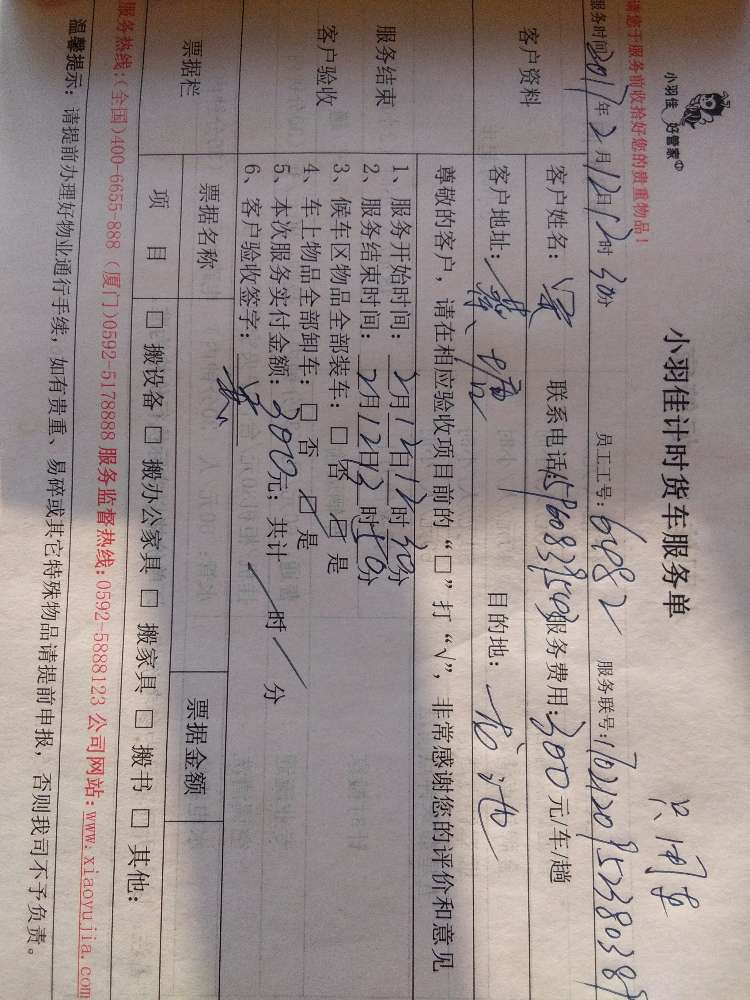 小羽佳 好管家
小羽佳计时货车服务单
请您于服务前收拾好您的贵重物品！
服务时间 2017年2月12日12时30分 员工工号: 服务联号:
客户资料
客户姓名: 联系电话 服务费用:300元/车/趟
客户地址: 目的地:
尊敬的客户，请在相应验收项目前的“□”打“√”，非常感谢您的评价和意见
服务结束
客户验收
1、服务开始时间: 2月12日12时30分
2、服务结束时间: 2月12日 时50分
3、候车区物品全部装车: □ 否 ☑ 是
4、车上物品全部卸车: □ 否 ☑ 是
5、本次服务实付金额: 300元; 共计 / 时 / 分
6、客户验收签字:
票据栏
票据名称 票据金额
项 目 □ 搬设备 □ 搬办公家具 □ 搬家具 □ 搬书 □ 其他:
服务热线:(全国)400-6655-888 (厦门)0592-5178888 服务监督热线:0592-5888123 公司网站:www.xiaoyujia.com
温馨提示: 请提前办理好物业通行手续，如有贵重、易碎或其它特殊物品请提前申报，否则我司不予负责。